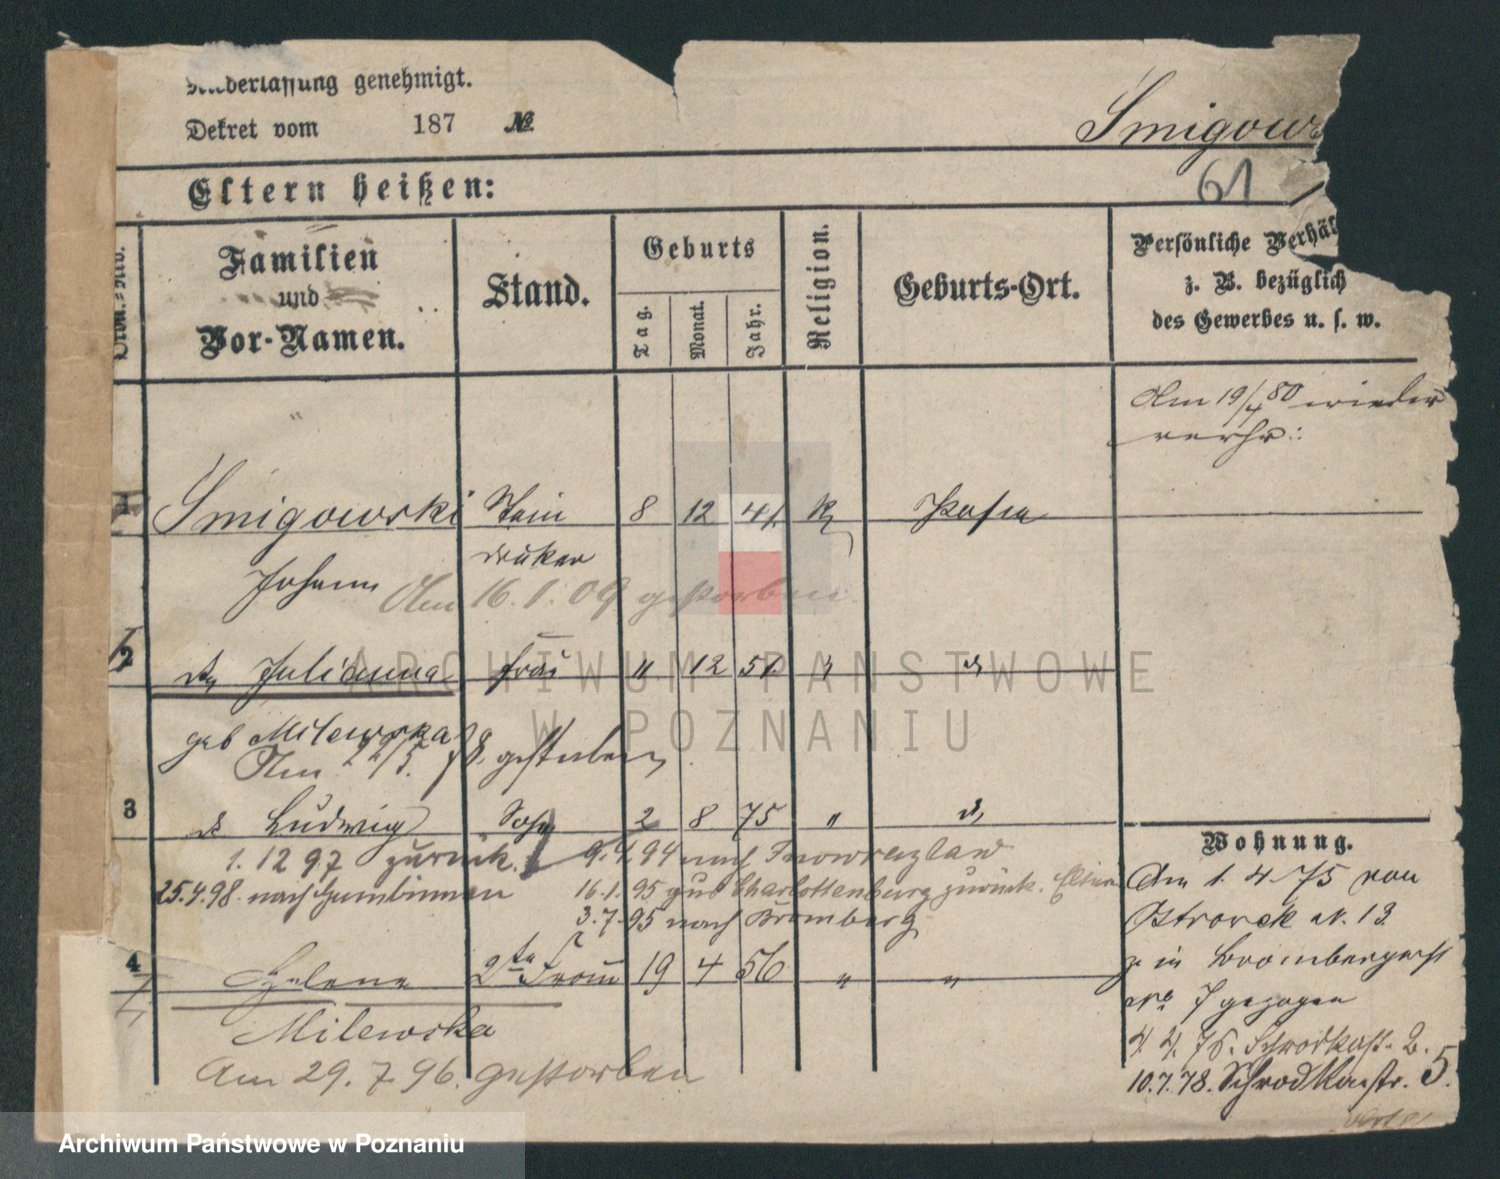 Niederlassung genehmigt.
Dekret vom 187 №
Smigows
61
Eltern heißen:
Familien
und
Vor-Namen.
Stand.
Geburts
Tag.
Monat.
Jahr.
Religion.
Geburts-Ort.
Persönliche Verhäl
z. B. bezüglich
des Gewerbes u. s. w.
Am 19/4 80 wieder
verh:
1 Smigowski Stein 8 12 41 K Posen
drucker
Johann
Am 16.1.09 gestorben
2 Julianna Frau " 12 51 "
geb Milewska
Am 22/5. 78. gestorben
3 Ludwig Sohn 2 8 75 "
1. 12 97 zurück. 9.4.94 nach Inowrazlaw
25.4.98. nach Gumbinnen 16.1.95 aus Charlottenburg zurück. Eltern
3.7.95 nach Bromberg
4 Helene 2te Frau 19 4 56 " "
Milewska
Am 29.7.96. gestorben
Wohnung.
Am 1. 4 75 von
Ostrowek N. 13
in Brombergerst
No 7 gezogen
4. 4. 76. Schrodkastr. 2.
10.7.78. Schrodkastr. 5.
ARCHIWUM PAŃSTWOWE
W POZNANIU
Archiwum Państwowe w Poznaniu